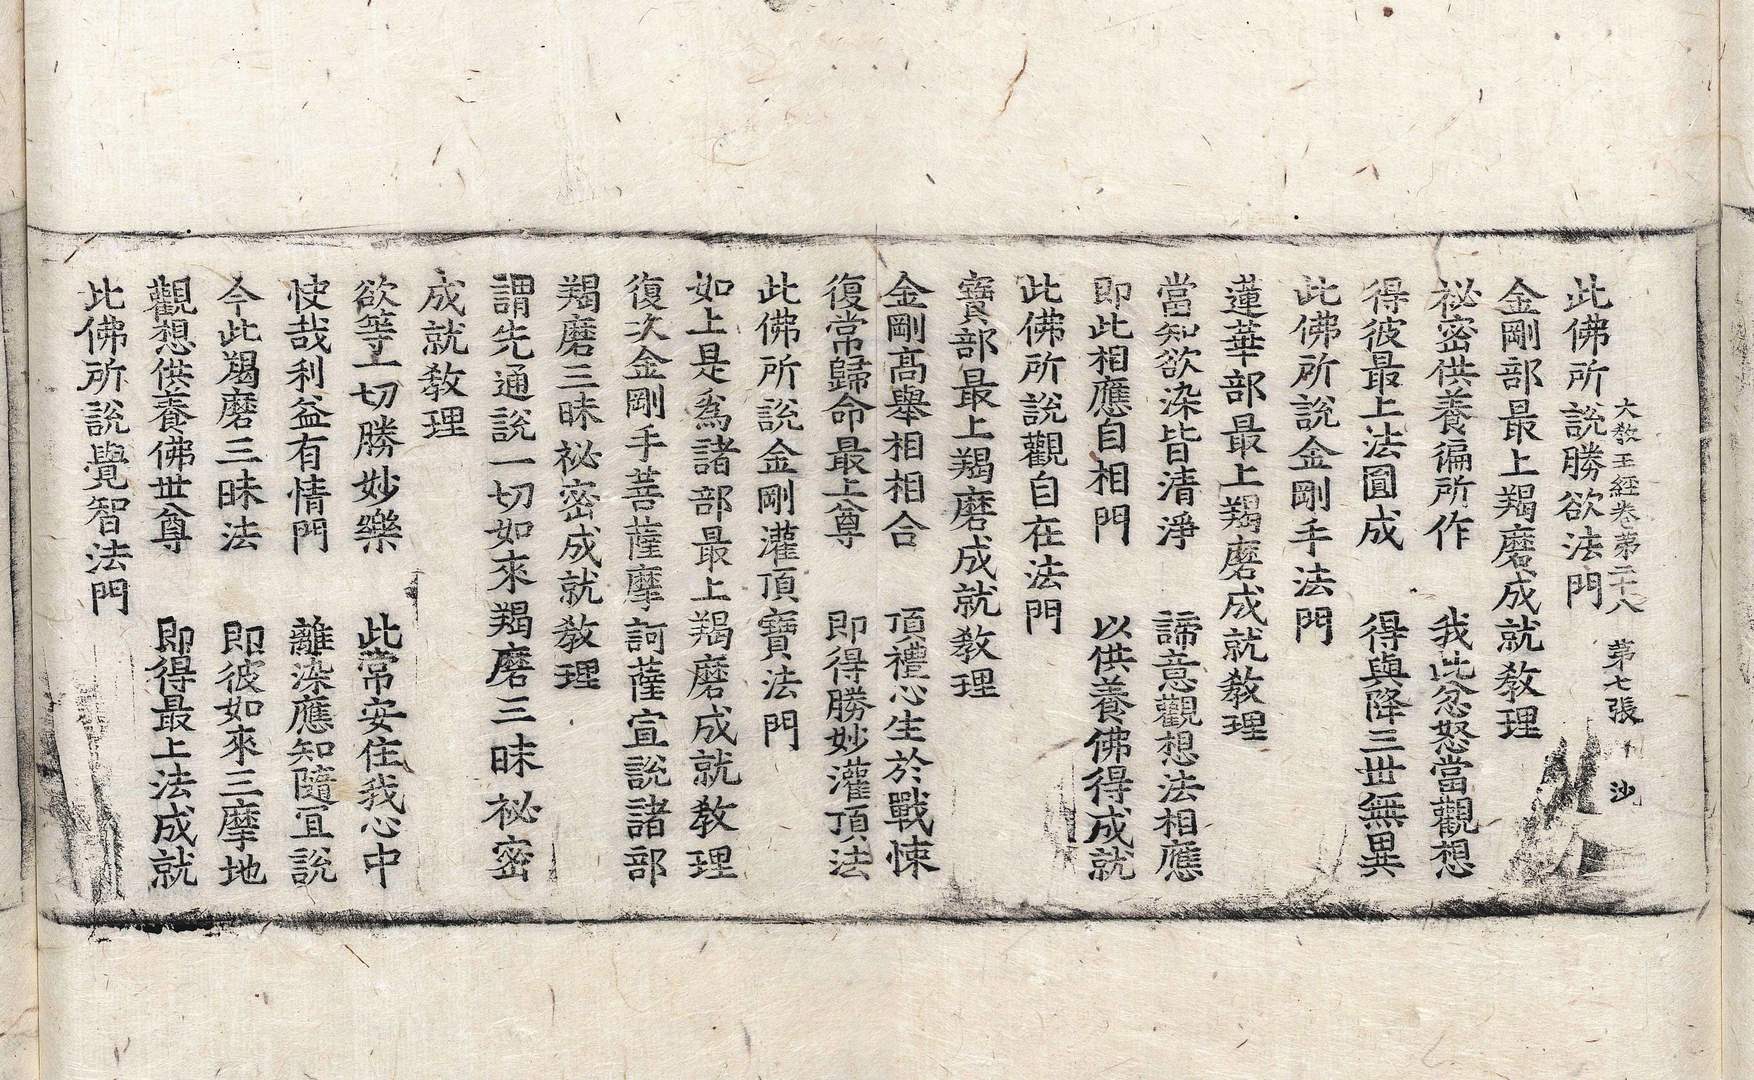 大教王經卷第二十八　第七張　沙
此佛所說勝欲法門
金剛部最上羯磨成就教理
祕密供養徧所作　我此忿怒當觀想
得彼最上法圓成　得與降三世無異
此佛所說金剛手法門
蓮華部最上羯磨成就教理
當知欲染皆清淨　諦意觀想法相應
即此相應自相門　以供養佛得成就
此佛所說觀自在法門
寶部最上羯磨成就教理
金剛高舉相相合　頂禮心生於戰悚
復常歸命最上尊　即得勝妙灌頂法
此佛所說金剛灌頂寶法門
如上是為諸部最上羯磨成就教理
復次金剛手菩薩摩訶薩宣說諸部
羯磨三昧祕密成就教理
謂先通說一切如來羯磨三昧祕密
成就教理
欲等一切勝妙樂　此常安住我心中
快哉利益有情門　離染應知隨宜說
今此羯磨三昧法　即彼如來三摩地
觀想供養佛世尊　即得最上法成就
此佛所說覺智法門